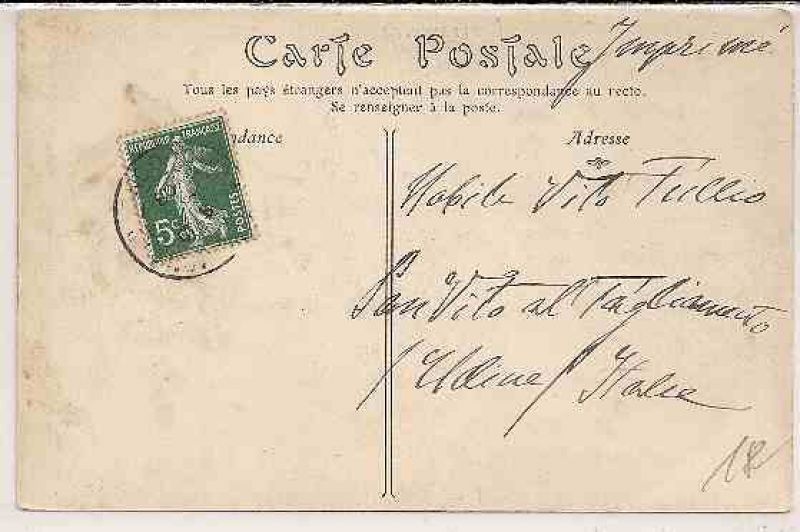 Carte Postale Imprimé
Tous les pays étrangers n'acceptent pas la correspondance au recto.
Se renseigner à la poste.
ndance
Adresse
REPUBLIQUE FRANÇAISE
5c
POSTES
Nobile Vito Tullio
San Vito al Tagliamento
(Udine) Italie
18